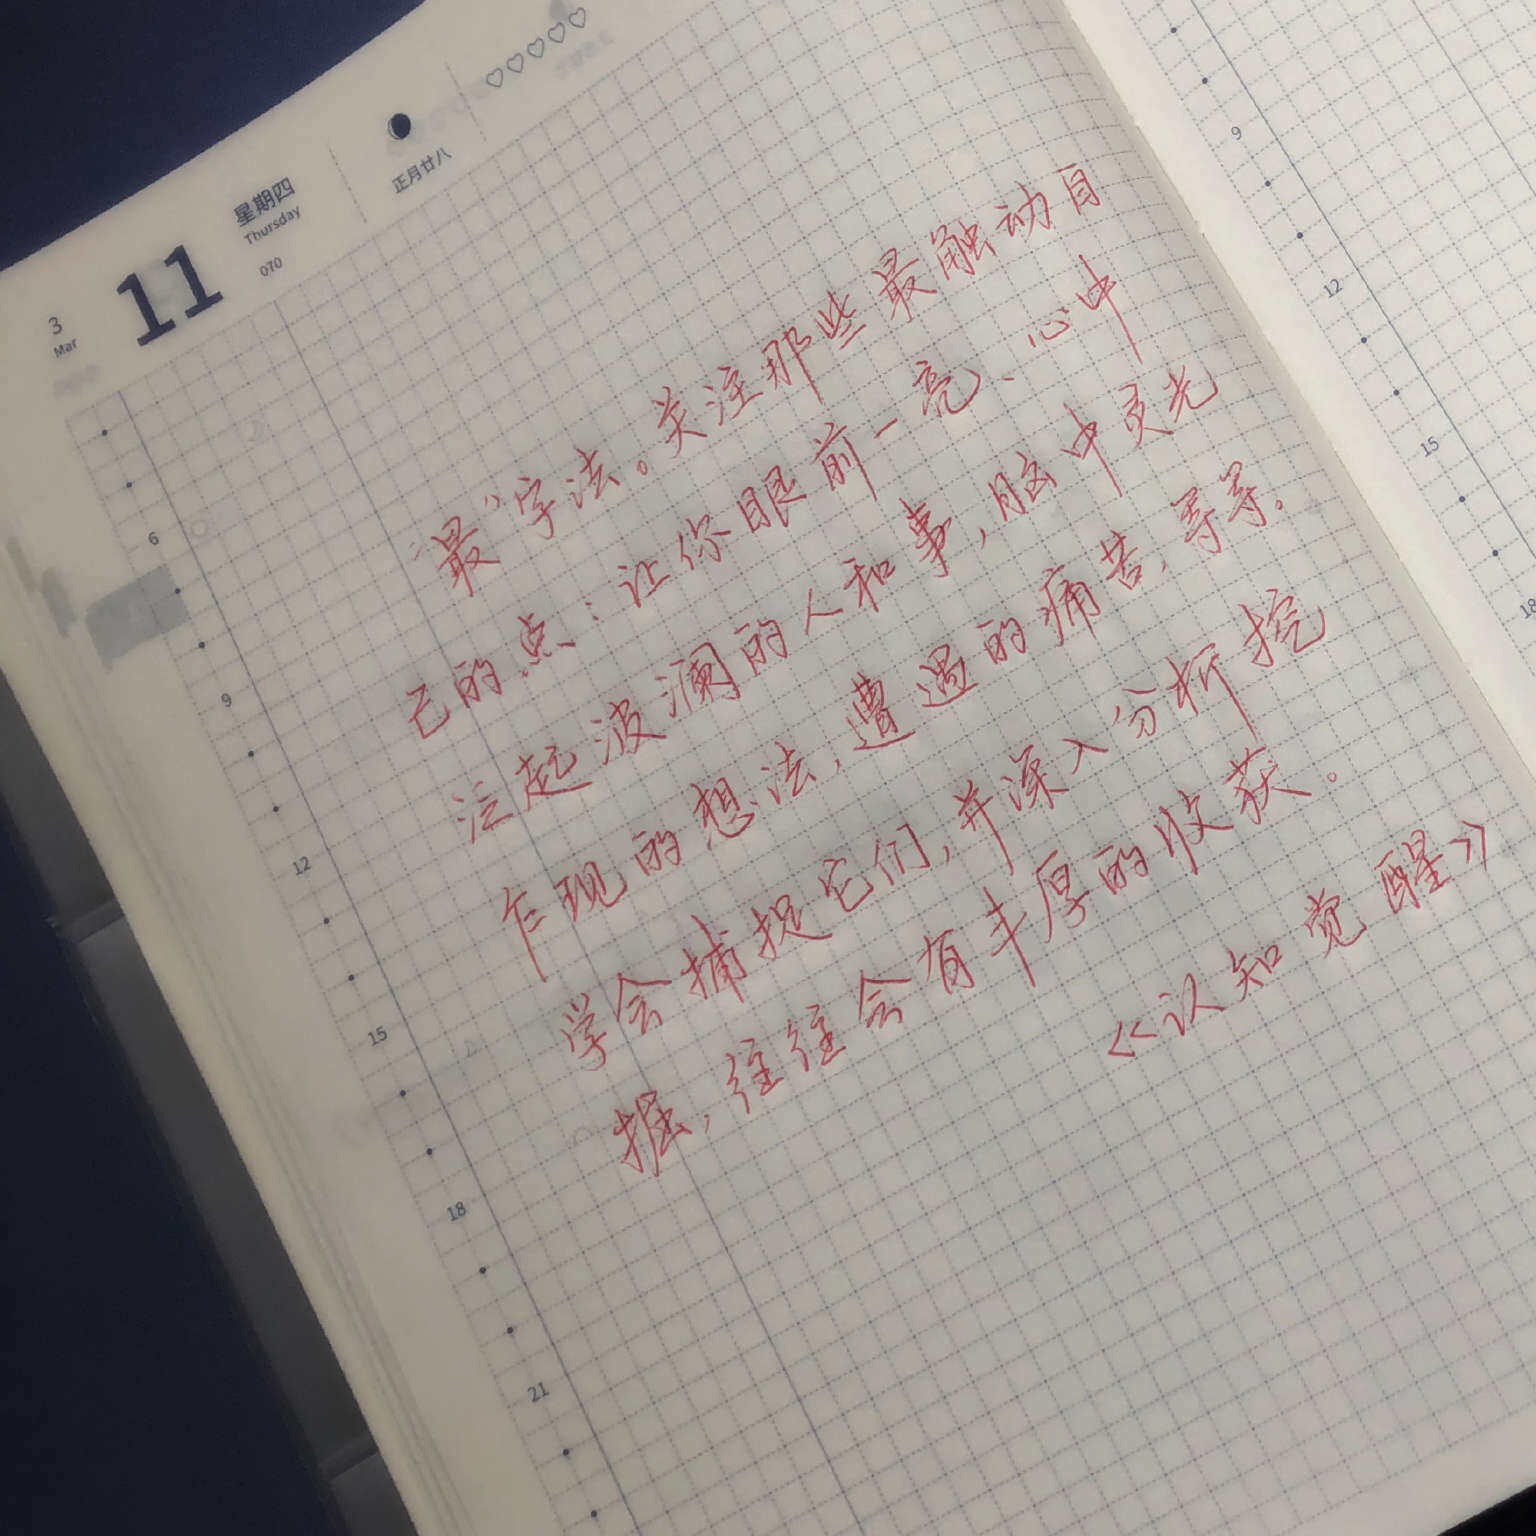 3
Mar
11
星期四
Thursday
070
正月廿八
“最”字法。关注那些最触动自
己的点：让你眼前一亮、心中
泛起波澜的人和事，脑中灵光
乍现的想法，遭遇的痛苦，等等。
学会捕捉它们，并深入分析挖
掘，往往会有丰厚的收获。
《认知觉醒》
6
9
12
15
18
21
9
12
15
18